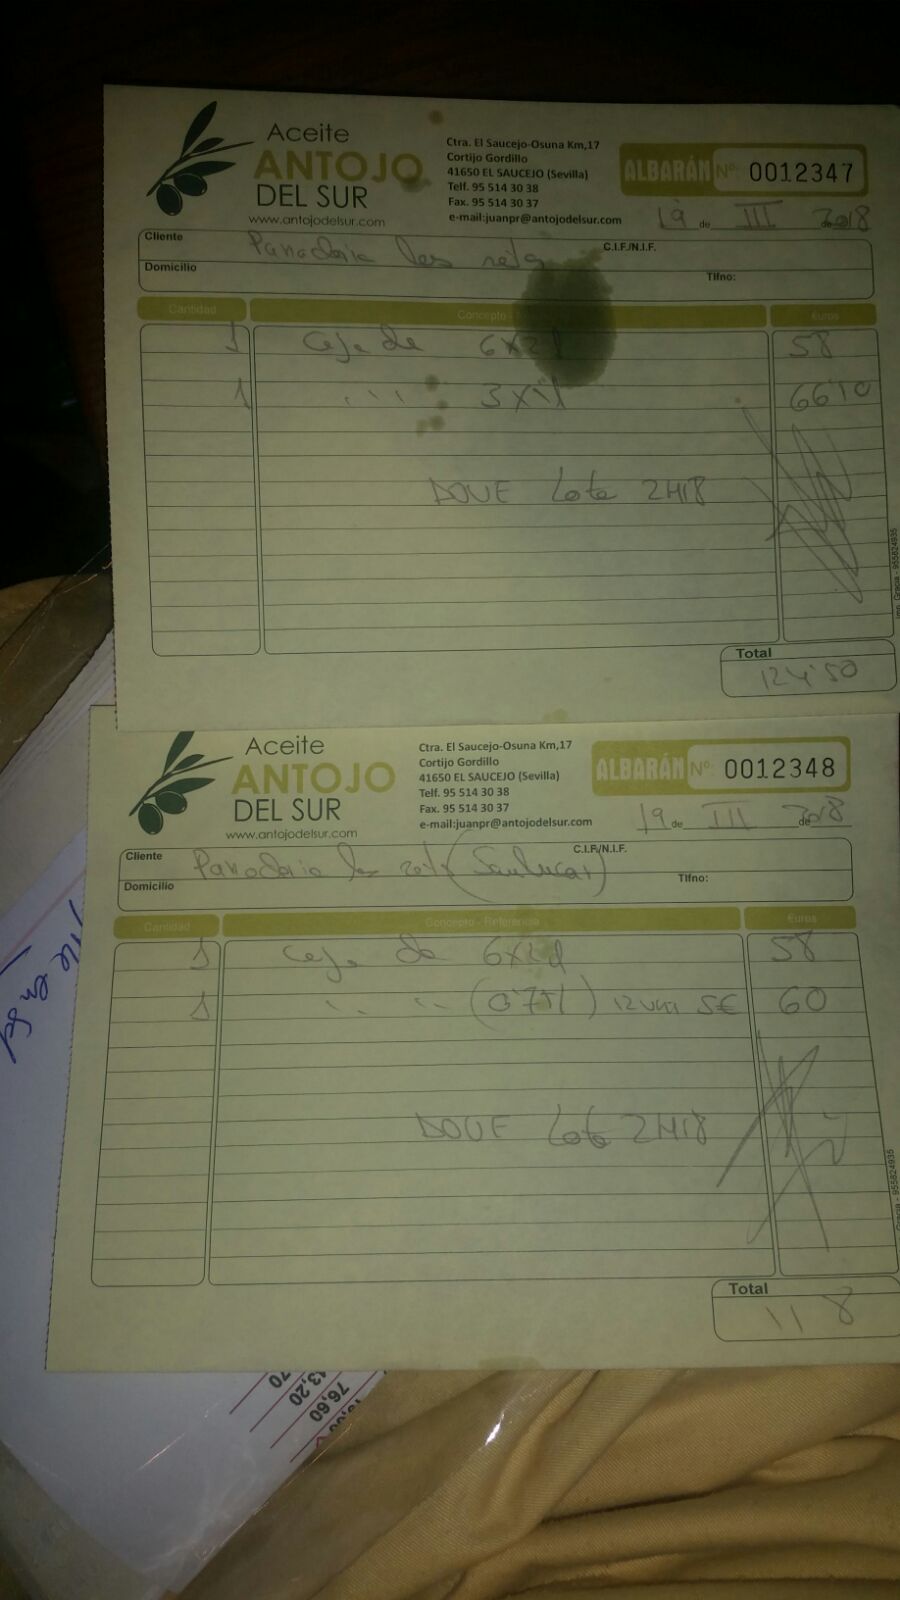 Aceite
ANTOJO
DEL SUR
www.antojodelsur.com
Ctra. El Saucejo-Osuna Km,17
Cortijo Gordillo
41650 EL SAUCEJO (Sevilla)
Telf. 95 514 30 38
Fax. 95 514 30 37
e-mail:juanpr@antojodelsur.com
ALBARÁN Nº: 0012347
19 de III de 2018
Cliente Panaderia las
C.I.F./N.I.F.
Domicilio
Tlfno:
Cantidad Concepto Euros
1 Caja de 6x2l 58
1 " " " 66'10
DOUE Lote 2418
Total
124'50
Imp. Gracia - 955824935
Aceite
ANTOJO
DEL SUR
www.antojodelsur.com
Ctra. El Saucejo-Osuna Km,17
Cortijo Gordillo
41650 EL SAUCEJO (Sevilla)
Telf. 95 514 30 38
Fax. 95 514 30 37
e-mail:juanpr@antojodelsur.com
ALBARÁN Nº: 0012348
19 de III de 2018
Cliente Panaderia las (Sanlucar)
C.I.F./N.I.F.
Domicilio
Tlfno:
Cantidad Concepto - Referencia Euros
1 Caja de 6x2l 58
1 " " (0'75l) 12 5€ 60
DOUE Lote 2418
Total
118
Gracia - 955824935
70
13,20
76,60